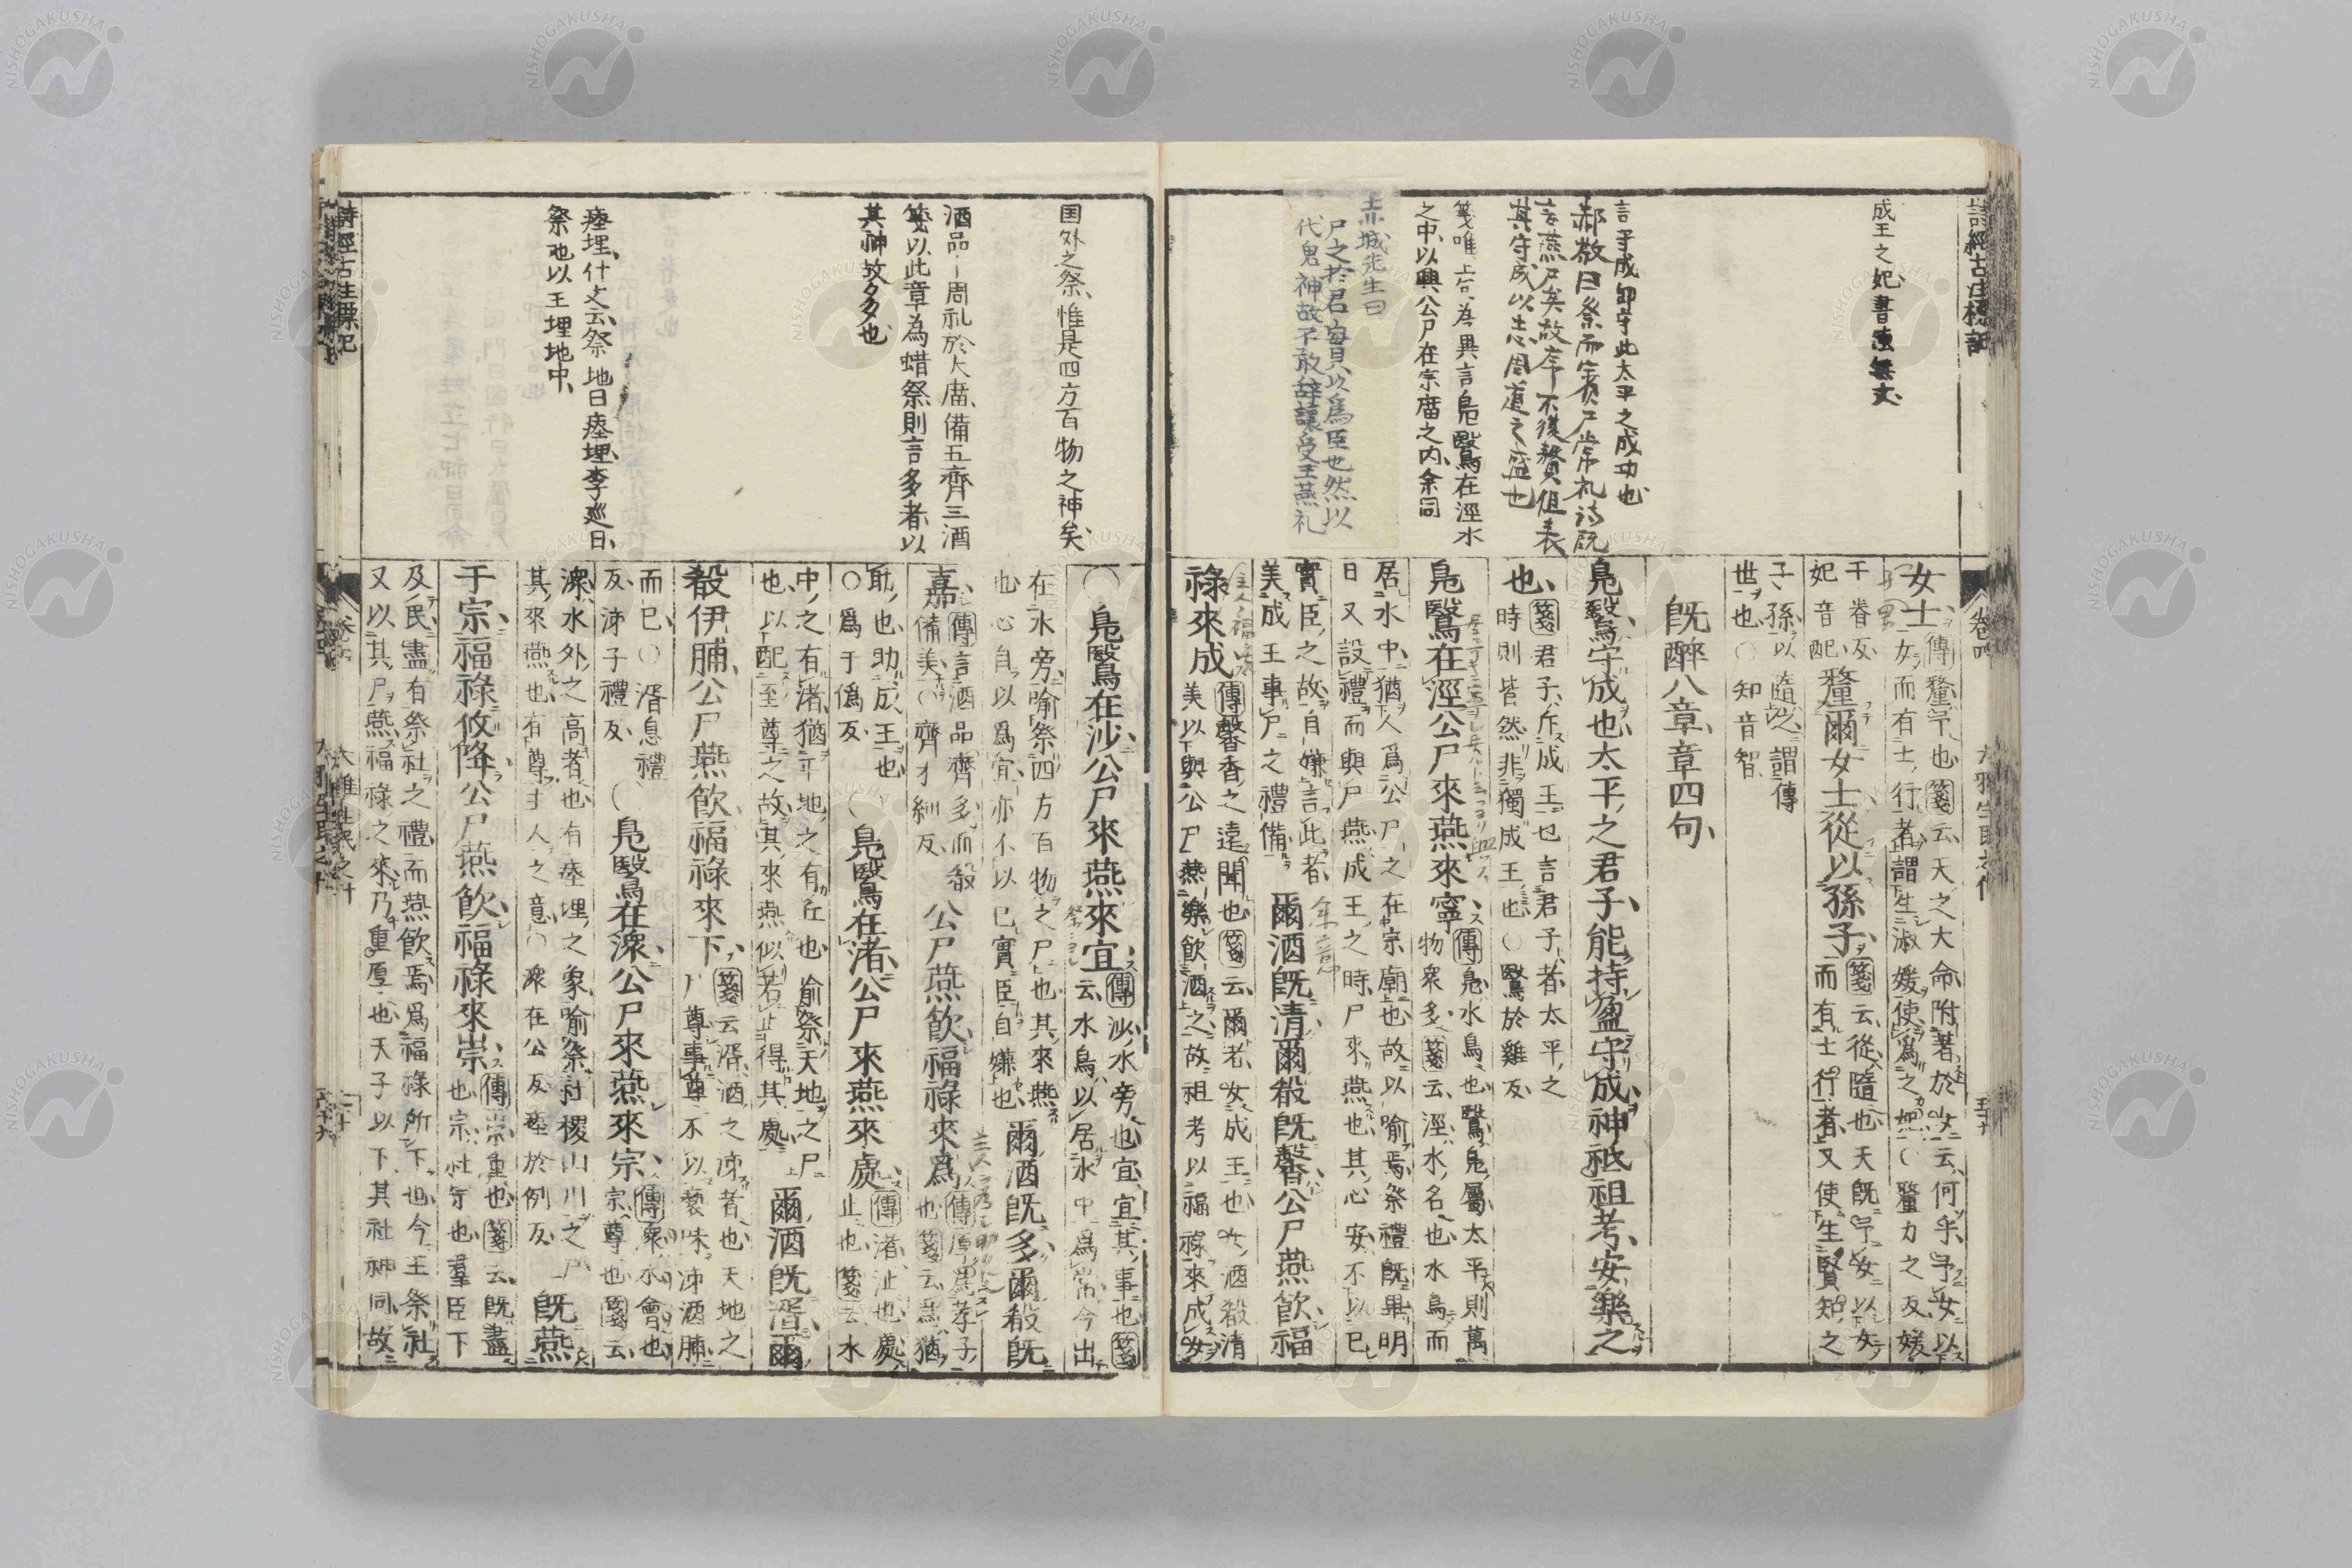 成王之妃書傳無文
言守成即守此太平之成功也
郝敬曰祭而賓尸常礼詩既
言燕尸矣故序不復贅但表
其守成以志周道之盛也
箋唯上台為異言鳧鷖在涇水
之中以興公尸在宗庿之内余同
城先生曰
尸之於君實以爲臣也然以
代鬼神故不敢辞讓受王燕礼
詩經古注標記
卷四
女士傳釐予也箋云天之大命附著於女云何乎予女以
女而有士行者謂生淑媛使爲之妃○釐力之反媛
于眷反
妃音配
釐爾女士從以孫子箋云從隨也天既予女以女
而有士行者又使生賢知之
子孫以隨之謂傳
世也○知音智
既醉八章章四句
鳧鷖守成也太平之君子能持盈守成神祇祖考安樂之
也箋君子斥成王也言君子者太平之
時則皆然非獨成王也○鷖於雞反
鳧鷖在涇公尸來燕來寧傳鳧水鳥也鷖鳧屬太平則萬
物衆多箋云涇水名也水鳥而
居水中猶人爲公尸之在宗廟也故以喻焉祭禮既畢明
日又設禮而與尸燕成王之時尸來燕也其心安不以已
實臣之故自嫌言此者
美成王事尸之禮備
爾酒既清爾殽既馨公尸燕飲福
祿來成傳馨香之遠聞也箋云爾者女成王也女酒殽清
美以與公尸燕樂飲酒之故祖考以福祿來成女
国外之祭惟是四方百物之神矣
酒品－周礼於大庿備五齊三酒
箋以此章為蜡祭則言多者以
其神故多也
瘞埋什文云祭地曰瘞埋李巡曰
祭地以玉埋地中
○鳧鷖在沙公尸來燕來宜傳沙水旁也宜宜其事也箋
云水鳥以居水中爲常今出
在水旁喻祭四方百物之尸也其來燕
也心自以爲宜亦不以已實臣自嫌也
爾酒既多爾殽既
嘉傳言酒品齊多而殽
備美○齊才細反
公尸燕飲福祿來爲傳厚爲孝子
也箋云爲猶
助也助成王也
○爲于僞反
○鳧鷖在渚公尸來燕來處傳渚沚也處
止也箋云水
中之有渚猶平地之有丘也喻祭天地之尸
也以配至尊之故其來燕似若止得其處
爾酒既湑爾
殽伊脯公尸燕飲福祿來下箋云湑酒之泲者也天地之
尸尊事尊不以褻味泲酒脯
而已○湑息禮
反泲子禮反
○鳧鷖在潨公尸來燕來宗傳潨水會也
宗尊也箋云
潨水外之高者也有瘞埋之象喻祭社稷山川之尸
其來燕也有尊主人之意○潨在公反瘞於例反
既燕
于宗福祿攸降公尸燕飲福祿來崇傳崇重也箋云既盡
也宗社宗也羣臣下
及民盡有祭社之禮而燕飲焉爲福祿所下也今王祭社
又以其尸燕福祿之來乃重厚也天子以下其社神同故
詩經古注標記